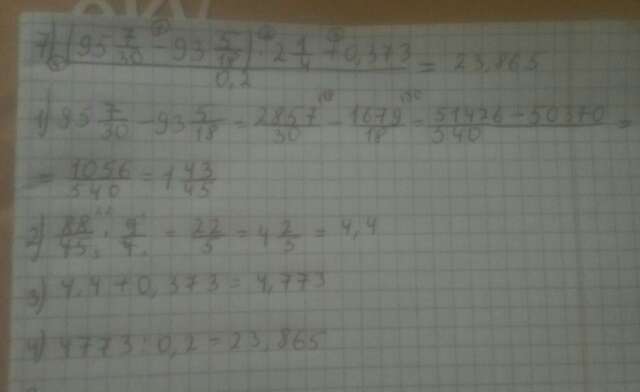 7) (95 7/30 - 93 5/18) · 2 1/4 + 0,373 / 0,2 = 23,865
1) 95 7/30 - 93 5/18 = 2857/30 - 1679/18 = 51426 - 50370/540 =
= 1056/540 = 1 43/45
2) 88/45 · 9/4 = 22/5 = 4 2/5 = 4,4
3) 4,4 + 0,373 = 4,773
4) 4773 : 0,2 = 23,865